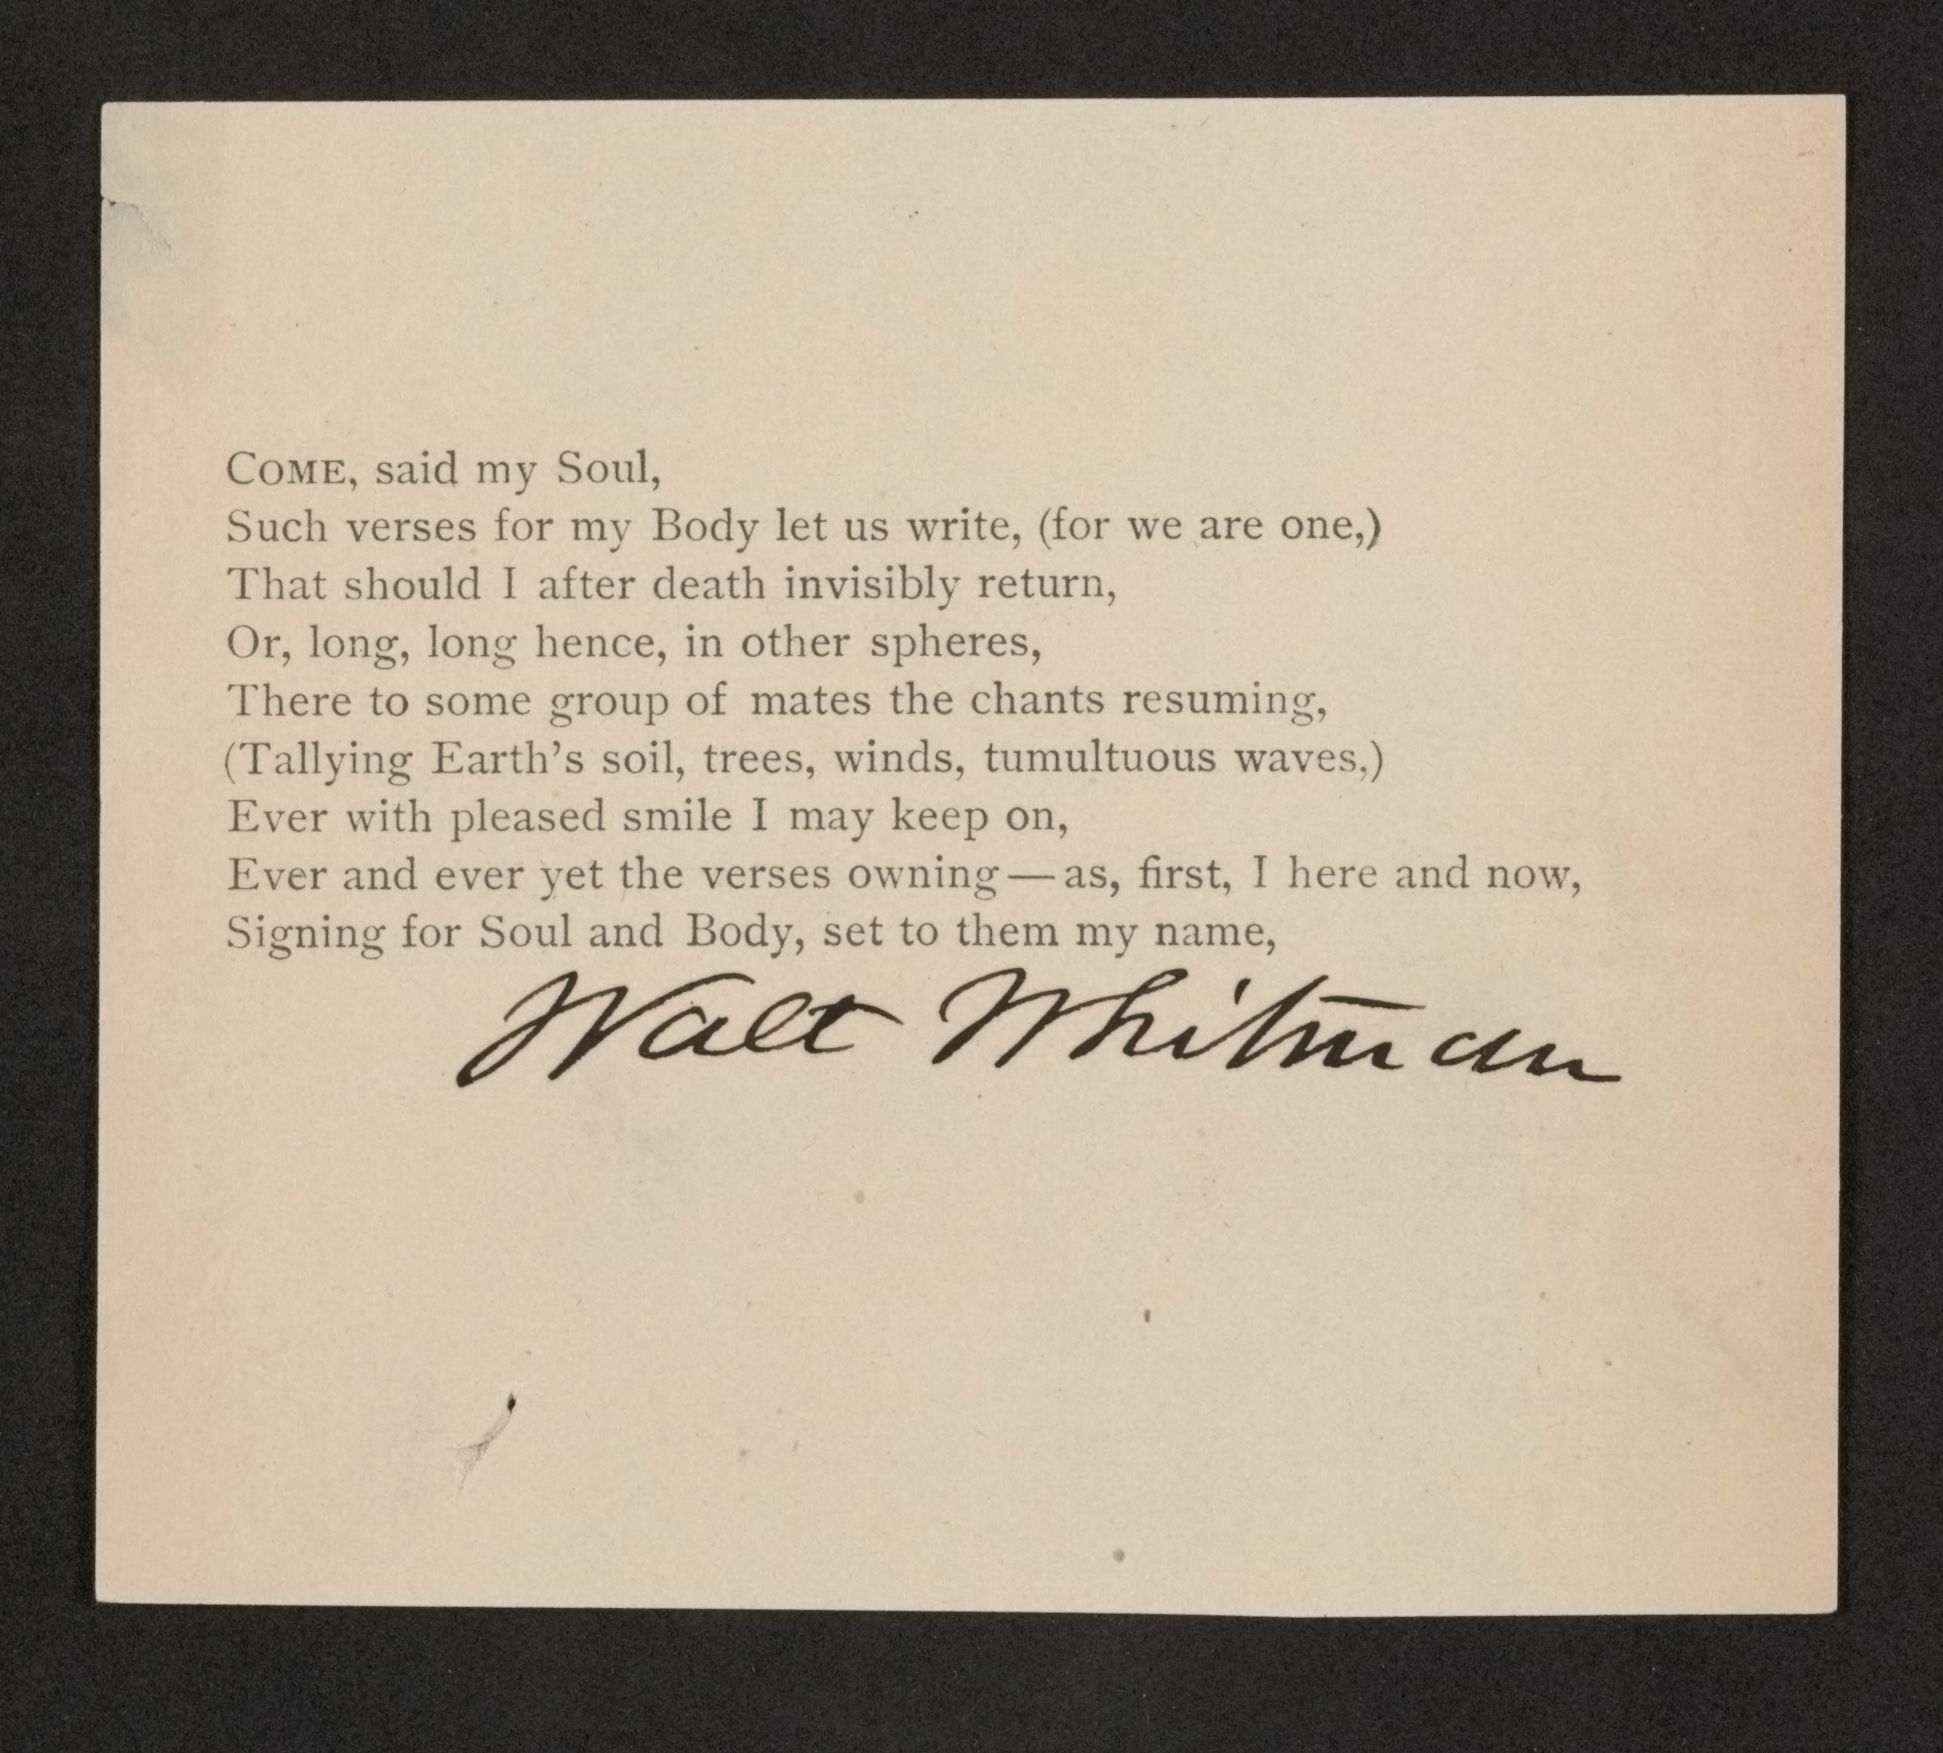 COME, said my Soul,
Such verses for my Body let us write, (for we are one,)
That should I after death invisibly return,
Or, long, long hence, in other spheres,
There to some group of mates the chants resuming,
(Tallying Earth’s soil, trees, winds, tumultuous waves,)
Ever with pleased smile I may keep on,
Ever and ever yet the verses owning—as, first, I here and now,
Signing for Soul and Body, set to them my name,
Walt Whitman